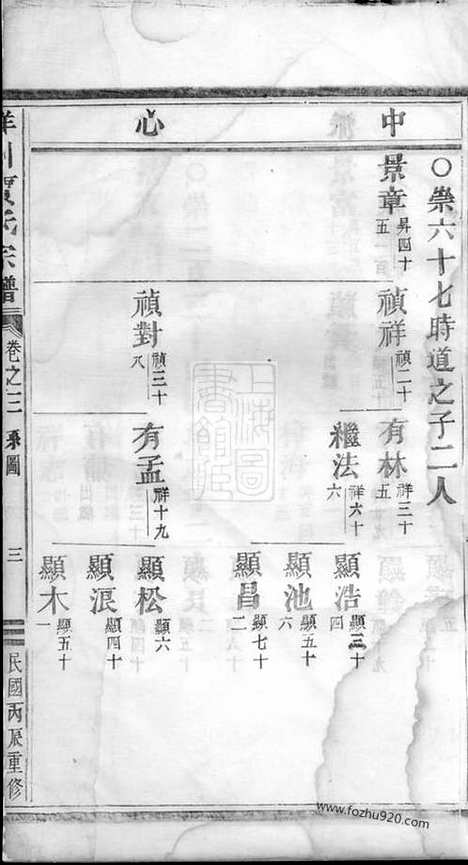 中心
〇崇六十七時道之子二人
景章 昇四十五
禎祥 禎二十
禎對 禎三十八
有林 祥三十五
繼法 祥六十六
有孟 祥十九
顯浩 顯三十四
顯池 顯五十六
顯昌 顯七十二
顯松 顯六
顯浪 顯四十
顯木 顯五十一
氏宗譜
卷之三 系圖
三
民國丙辰重修
上海圖書館藏
www.fozhu920.com